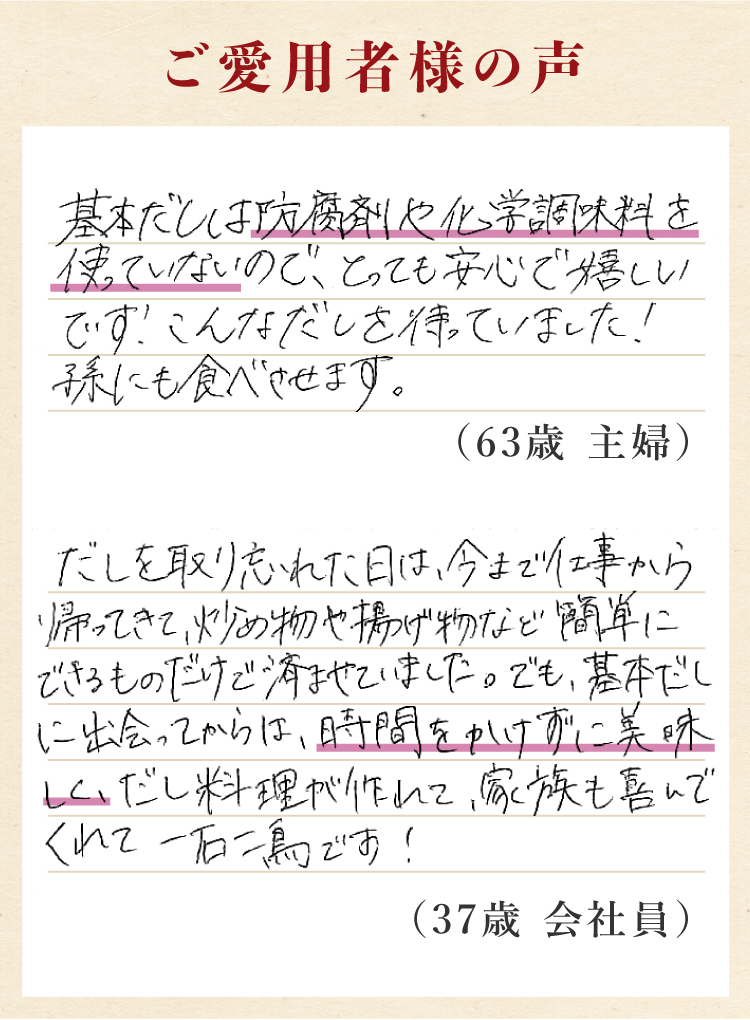 ご愛用者様の声
基本だしは防腐剤や化学調味料を
使っていないので、とっても安心で嬉しい
です！こんなだしを待っていました！
孫にも食べさせます。
（63歳 主婦）
だしを取り忘れた日は、今まで仕事から
帰ってきて、炒め物や揚げ物など簡単に
できるものだけで済ませていました。でも、基本だし
に出会ってからは、時間をかけずに美味
しく、だし料理が作れて、家族も喜んで
くれて一石二鳥です！
（37歳 会社員）